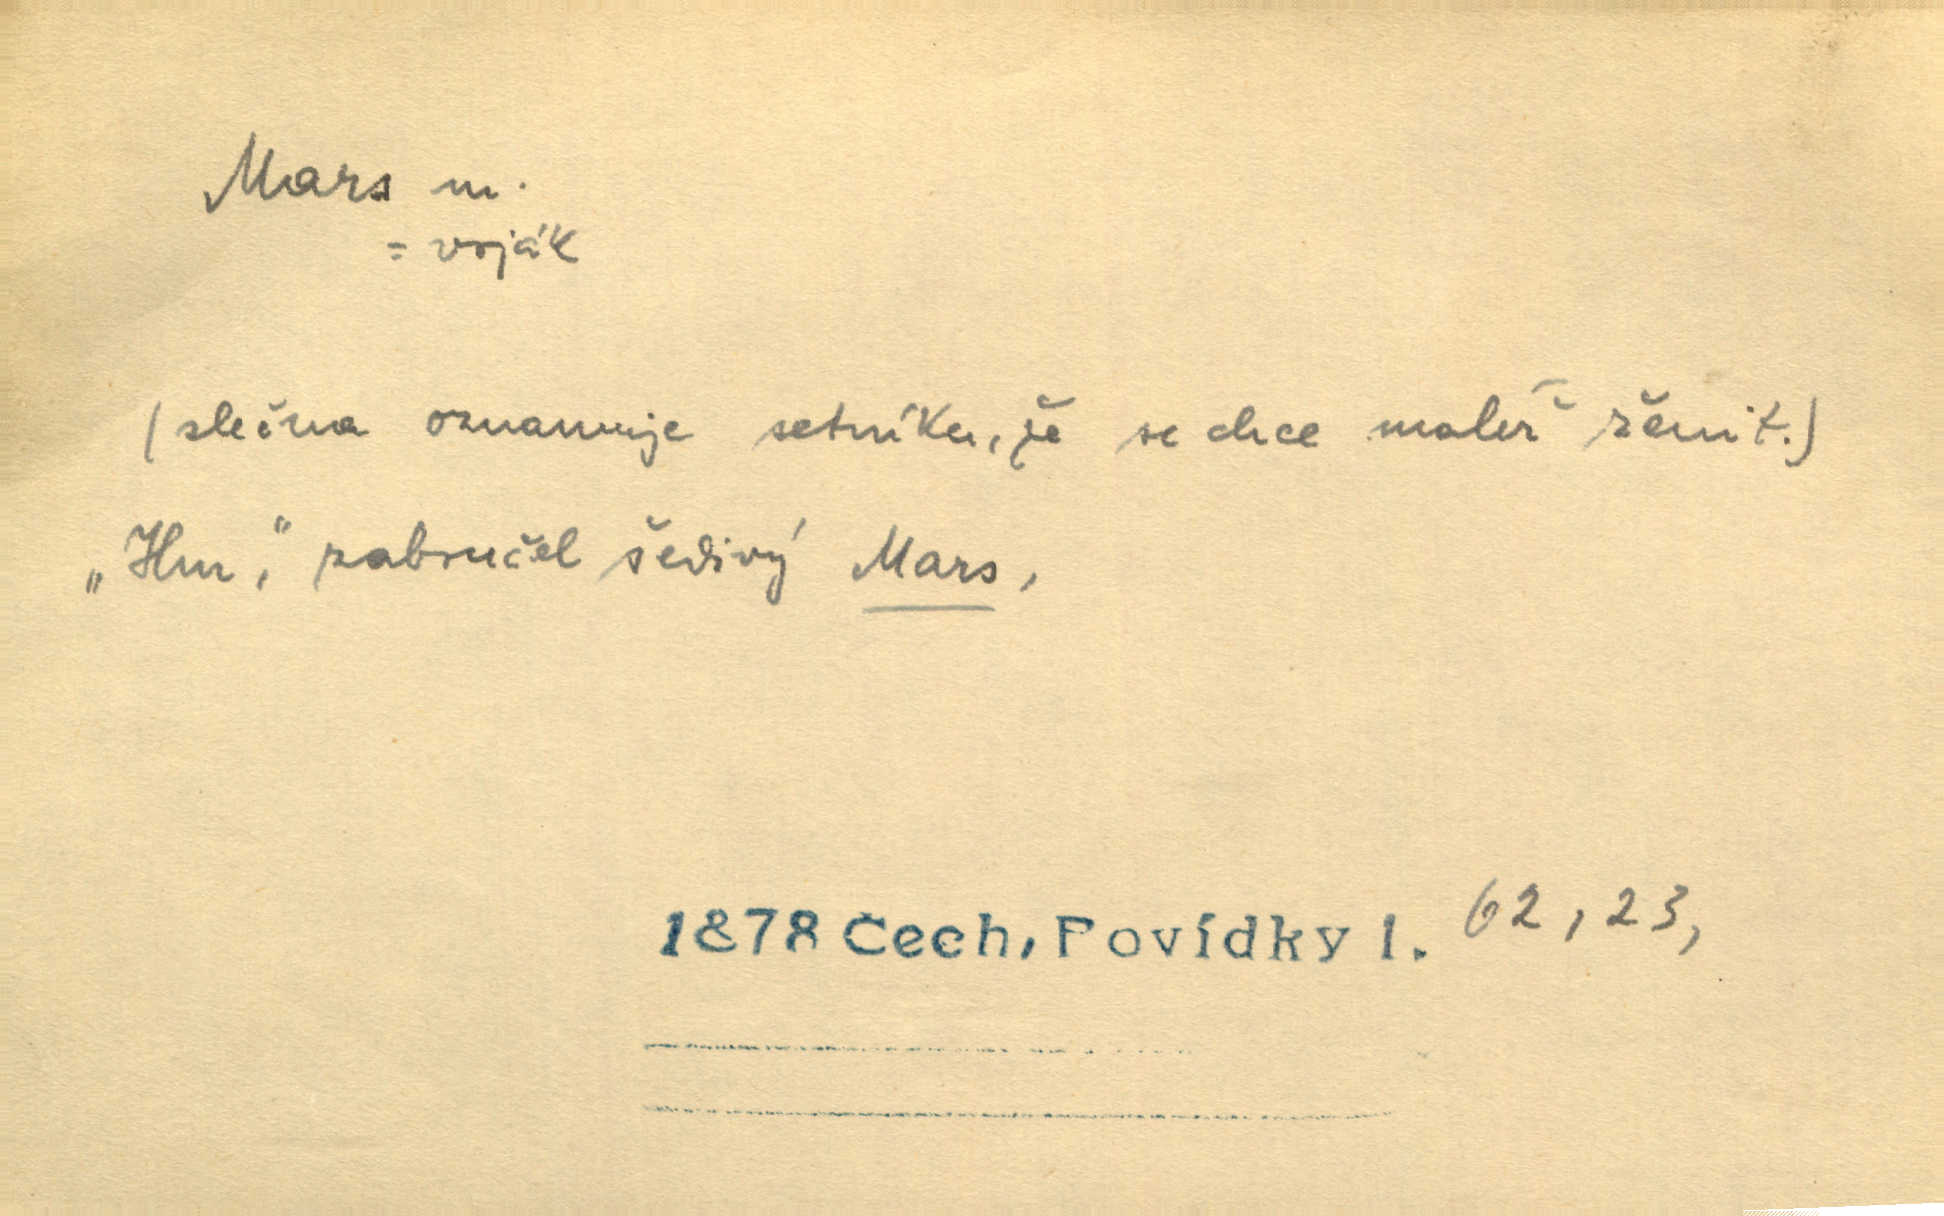 Mars m.
= voják
(slečna oznamuje setníku, že se chce malíř ženit.)
„Hm,“ zabručel šedivý Mars,
1878 Čech, Povídky I. 62, 23,